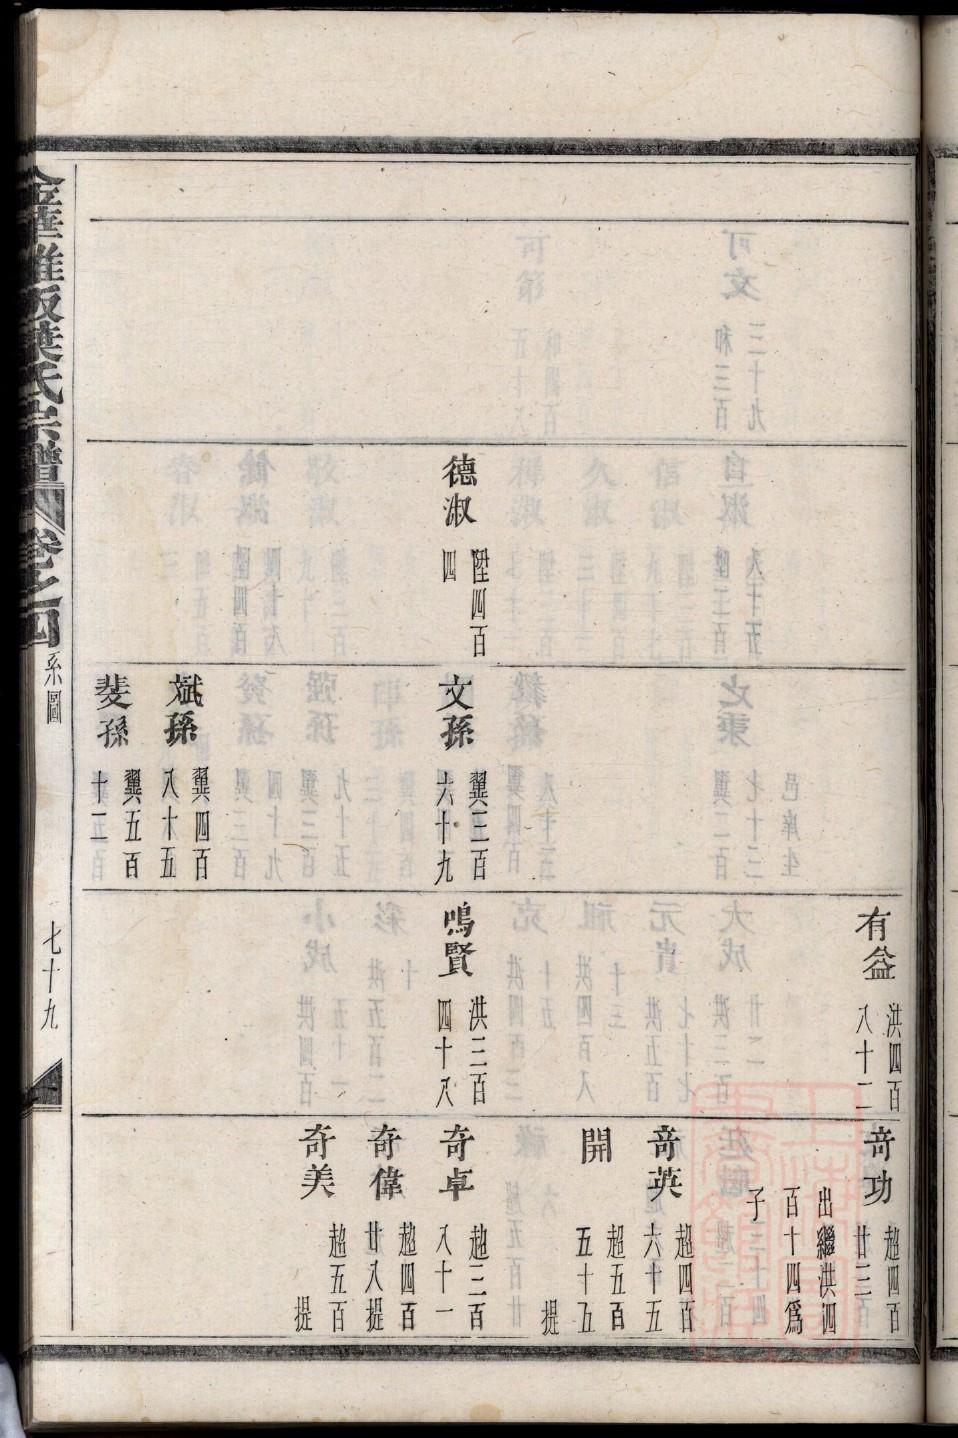 德淑
陞四百
四
文孫
翼三百
六十九
斌孫
翼四百
八十五
斐孫
翼五百
十二
有益
洪四百
八十二
鳴賢
洪三百
四十八
奇功
超四百
廿三
出繼洪四
百十四為
子
奇英
超四百
六十五
開
超五百
五十五
提
奇卓
超三百
八十一
奇偉
超四百
廿八提
奇美
超五百
提
葉氏宗譜
卷之四
系圖
七十九